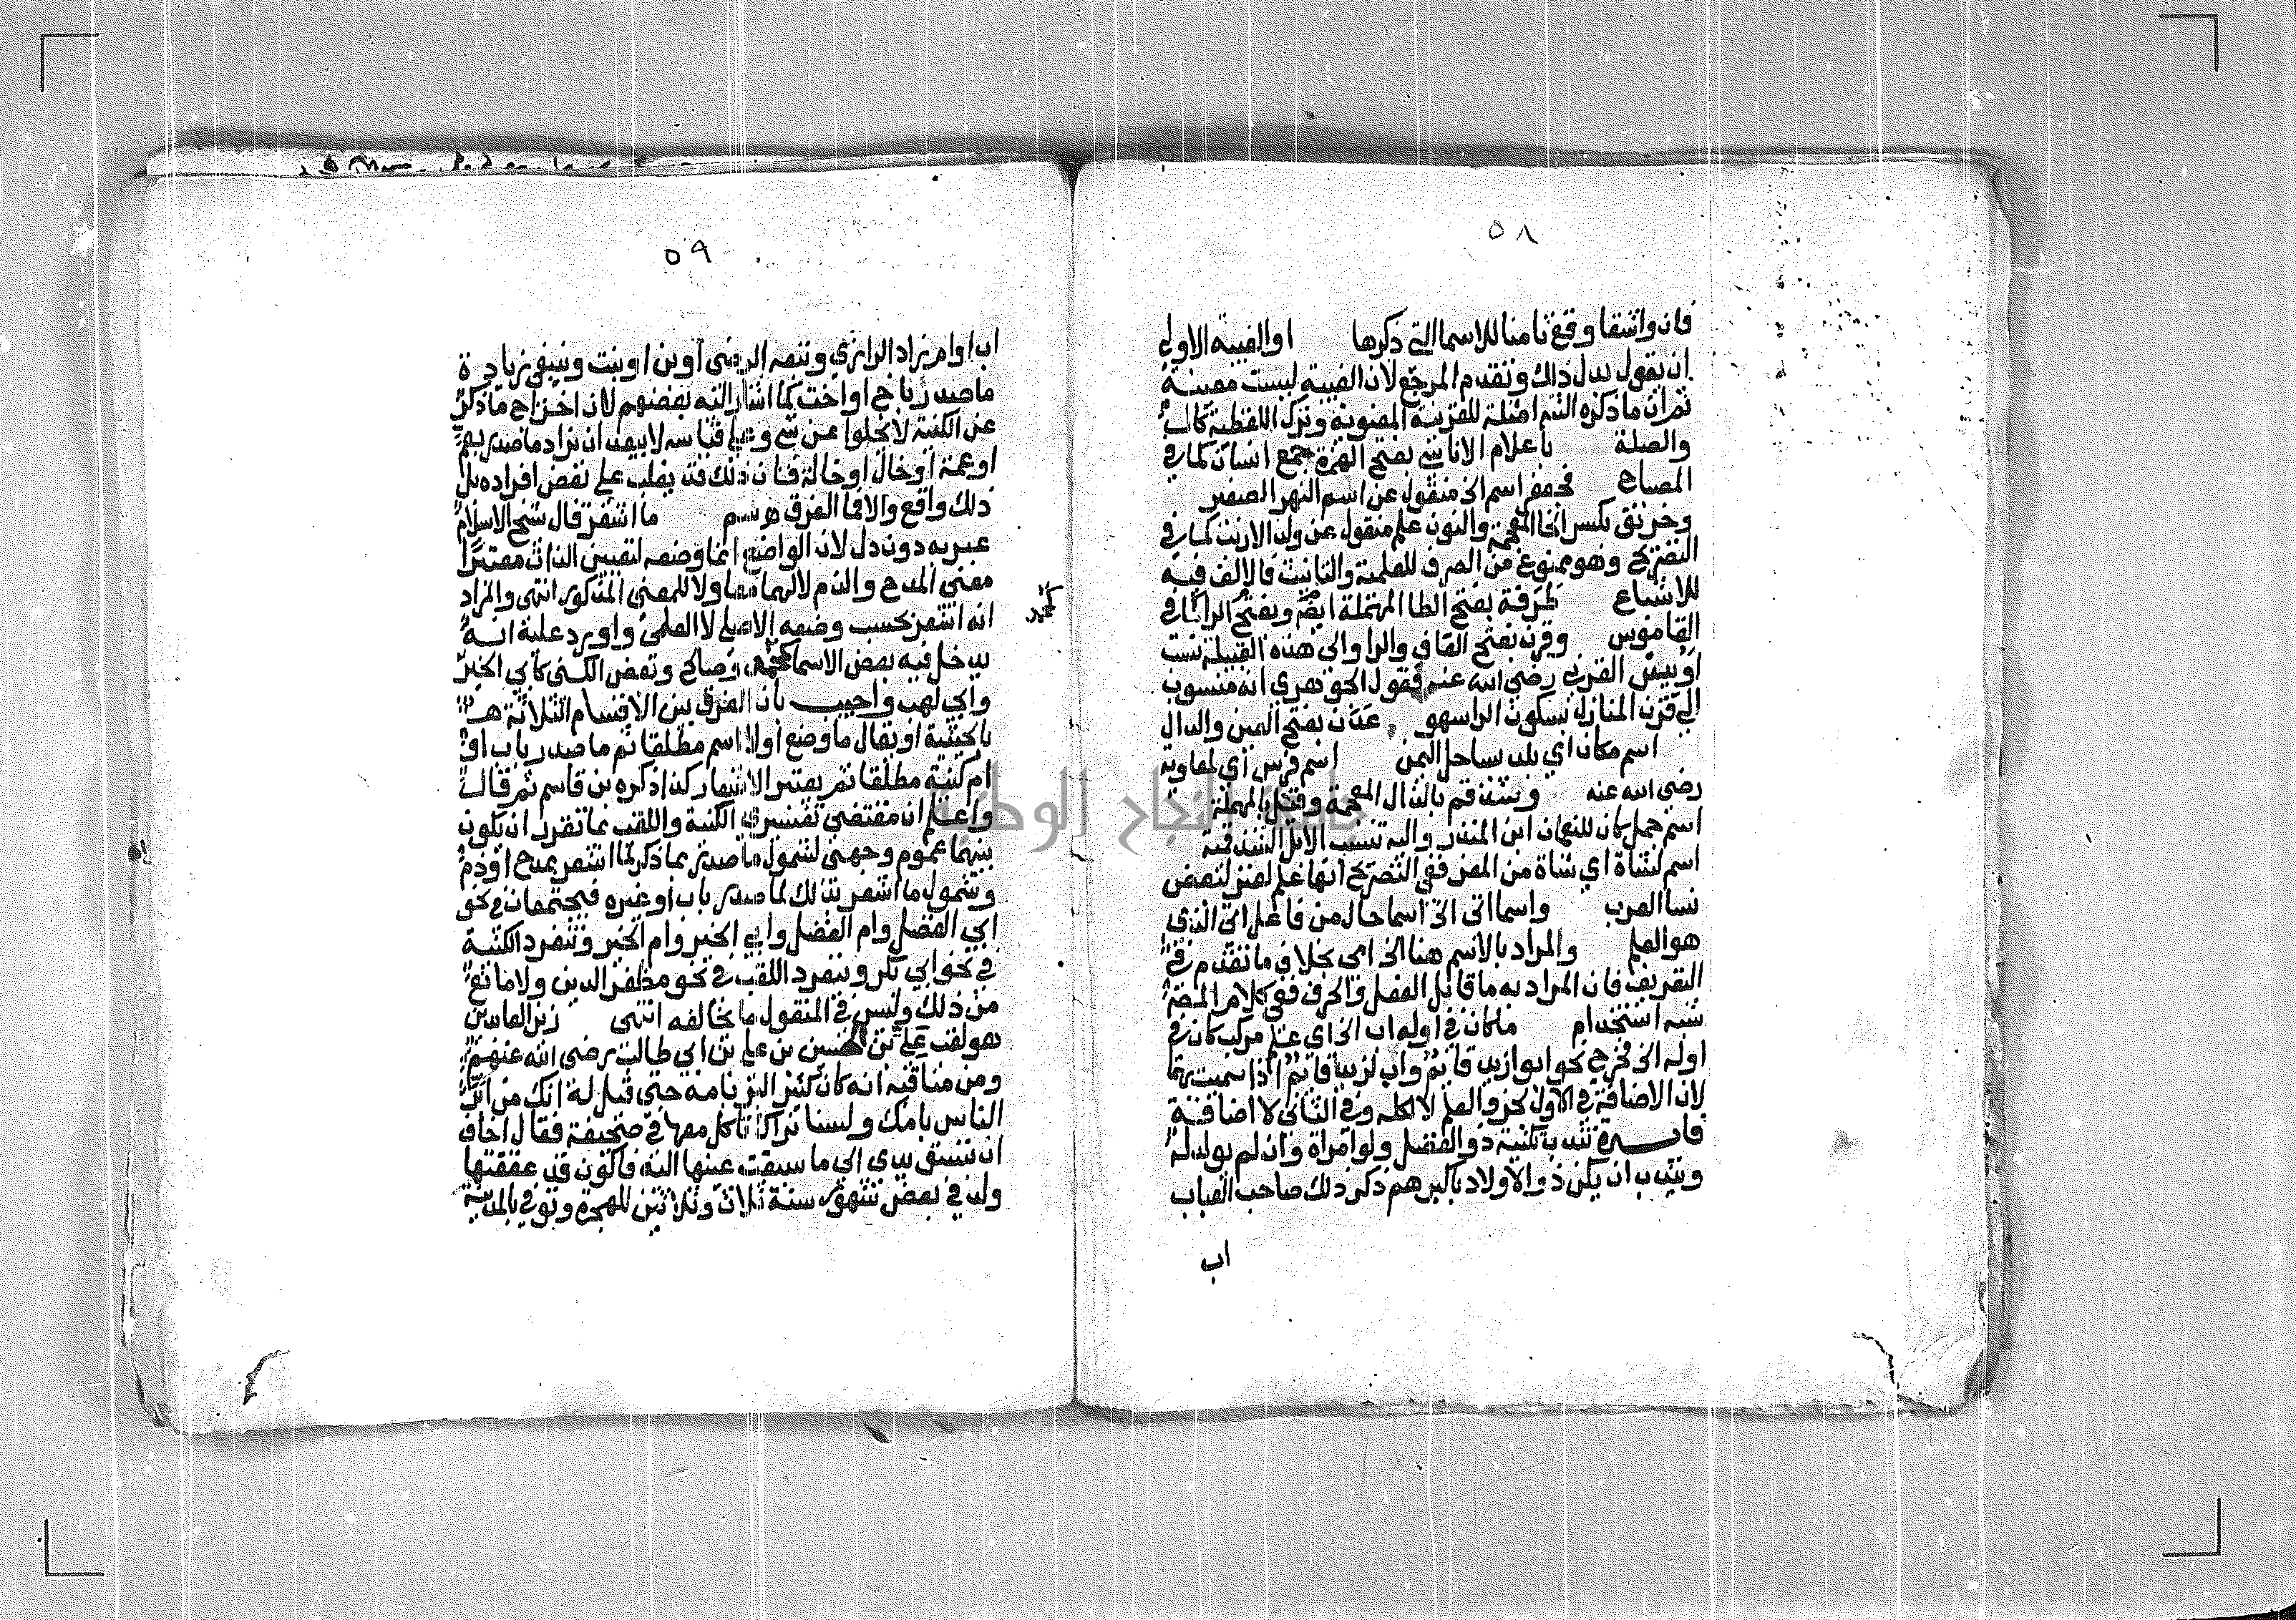 ٥٨
فان واشقا وقع ثامنا للاسما التي ذكرها او الغيبة الاولى
ان يقول بدل ذلك وتقدم المرجع لان الغيبة ليست معينة
ثم ان ما ذكره الشم امثلة للقرينة المعنوية وترك اللفظية كال
والصلة باعلام الاناسي بفتح الهمزة جمع انسان كما في
المصباح فجعفر اسم الخ منقول عن اسم النهر الصغير
وخرنق بكسر الخا المعجمة والنون علم منقول عن ولد الارنب كما في
التصريح وهو ممنوع من الصرف للعلمية والتانيث فالالف فيه
للاشباع طرفة بفتح الطا المهملة ايضا وبفتح الرا كما في
القاموس وقرن بفتح القاف والرا والى هذه القبيلة ينسب
اويس القرني رضي الله عنه فقول الجوهري انه منسوب
الى قرن المنازل بسكون الرا سهو عدن بفتح العين والدال
اسم مكان اي بلد بساحل اليمن اسم فرس اي لمعاوية
رضى الله عنه وشذقم بالذال المعجمة وقيل بالمهملة
اسم جمل كان للنعمان ابن المنذر واليه تنسب الابل الشذقمية
اسم لشاة اي شاة من المعز ففي التصريح انها علم لعنز لبعض
نسا العرب واسما اتى الخ اسما حال من فاعل اتى الذي
هو العلم والمراد بالاسم هنا الخ اى بخلاف ما تقدم في
التعريف فان المراد به ما قابل الفعل والحرف ففي كلام المص
شبه استخدام ما كان في اوله اب الخ اي علم مركب كان في
اوله الخ فخرج نحو ابو ازيد قائم واب لزيد قائم اذا سميت بهما
لان الاضافة في الاول لجزو العلم لا لكله وفي الثاني لا اضافة
فايدة يندب تكنية ذو الفضل ولو امراة وان لم يولد له
ويندب ان يكنى ذو الاولاد باكبرهم ذكر ذلك صاحب العباب
اب
٥٩
اب او ام زاد الرازي وتبعه الرضى او بن او بنت وينبغي زيادة
ما صدر باخ او اخت كما اشار اليه بعضهم لان اخراج ما ذكر
عن الكنية لا يخلوا عن شي وعلى قياسه لا يبعد ان يزاد ما صدر بعم
او عمة او خال او خالة فان ذلك قد يغلب على بعض افراده بل
ذلك واقع والا فما الفرق هو شم ما اشعر قال شيخ الاسلام
عبر به دون دل لان الواضع انما وضعه لتعيين الذات معتبرا
معنى المدح والذم لا لهما معا ولا للمعنى المذكور انتهى والمراد
انه اشعر بحسب وضعه الاصلي لا العلمي واورد عليه انه
يدخل فيه بعض الاسما كمحمد وصالح وبعض الكنى كابي الخير
وابي لهب واجيب بان الفرق بين الاقسام الثلاثة هـ
بالحيثية او يقال ما وضع اولا اسم مطلقا ثم ما صدر باب او
ام كنية مطلقا ثم يعتبر الاشعار كذا ذكره بن قاسم ثم قال
واعلم ان مقتضى تفسيرى الكنية واللقب بما تقرر ان يكون
بينهما عموم وجهى لشمول ما صدر بما ذكر لما اشعر بمدح او ذم
وشمول ما اشعر بذلك لما صدر باب او غيره فيجتمعان في نحو
ابي الفضل وام الفضل وابي الخير وام الخير وتنفرد الكنية
في نحو ابي بكر وينفرد اللقب في نحو مظفر الدين ولا مانع
من ذلك وليس في المنقول ما يخالفه انتهى زين العابدين
هو لقب علي بن الحسين بن على بن ابي طالب رضى الله عنهم
ومن مناقبه انه كان كثير البر بامه حتى قيل له انك من ابر
الناس بامك ولسنا نراك تاكل معها في صحيفة فقال اخاف
ان تسبق يدى الى ما سبقت عينها اليه فاكون قد عققتها
ولد في بعض شهور سنة ثلاث وثلاثين للهجرة وتوفي بالمدينة